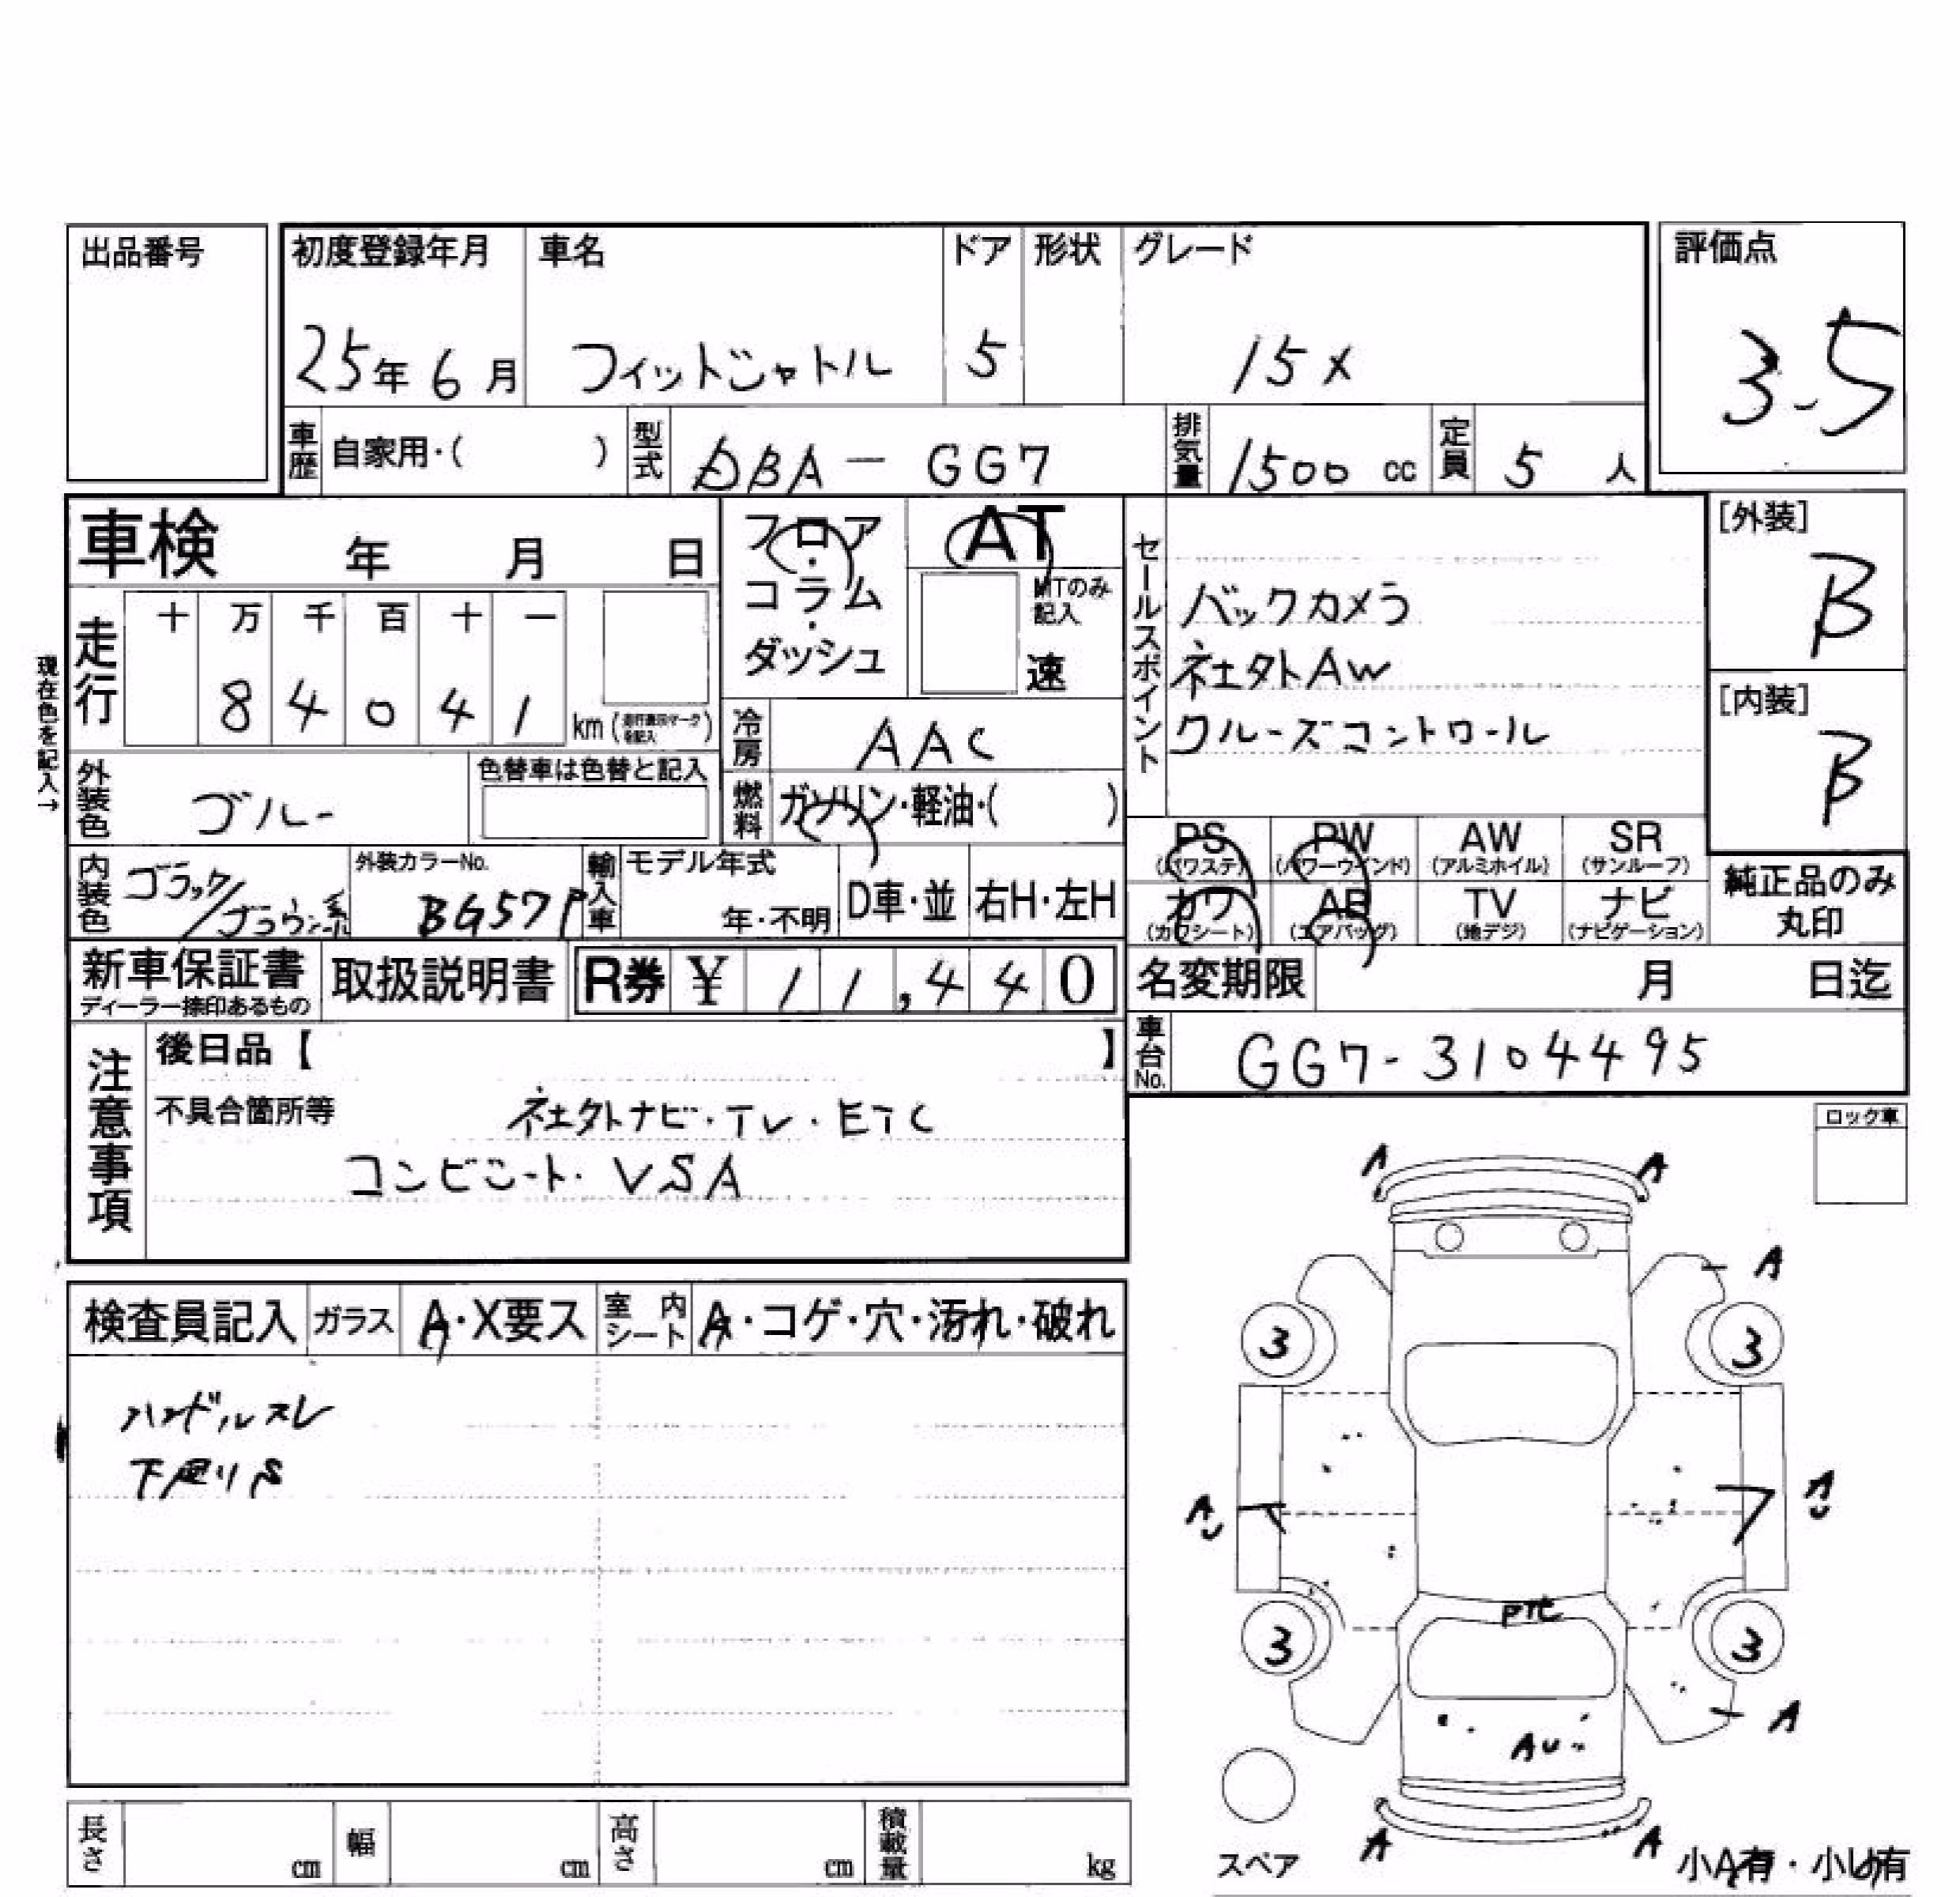 出品番号
初度登録年月 車名 ドア 形状 グレード 評価点
25年6月 フィットシャトル 5 15X 3.5
車歴 自家用・( ) 型式 DBA－GG7 排気量 1500cc 定員 5人
車検 年 月 日
フロア・コラム・ダッシュ AT
MTのみ記入 速
セールスポイント
バックカメラ
社外AW
クルーズコントロール
[外装] B
[内装] B
現在色を記入→
走行 十 万 千 百 十 一
8 4 0 4 1 km
冷房 AAC
外装色 ブルー 色替車は色替と記入
燃料 ガソリン・軽油・( )
PS (パワステ) PW (パワーウインド) AW (アルミホイル) SR (サンルーフ)
カワ (カワシート) AB (エアバッグ) TV (地デジ) ナビ (ナビゲーション)
純正品のみ丸印
内装色 ブラック/ブラウン系 外装カラーNo. BG57P 輸入車 モデル年式 年・不明 D車・並 右H・左H
新車保証書 ディーラー捺印あるもの 取扱説明書 R券 ¥ 11,440
名変期限 月 日迄
車台No. GG7-3104495
注意事項
後日品【 】
不具合箇所等 社外ナビ・TV・ETC
コンビシート・VSA
ロック車
検査員記入 ガラス A・X要ス 室内シート A・コゲ・穴・汚れ・破れ
ハンドルスレ
下廻りS
A A
A
3 3
AU AU
3 3
A
AU
A A
スペア 小A有・小U有
長さ cm 幅 cm 高さ cm 積載量 kg